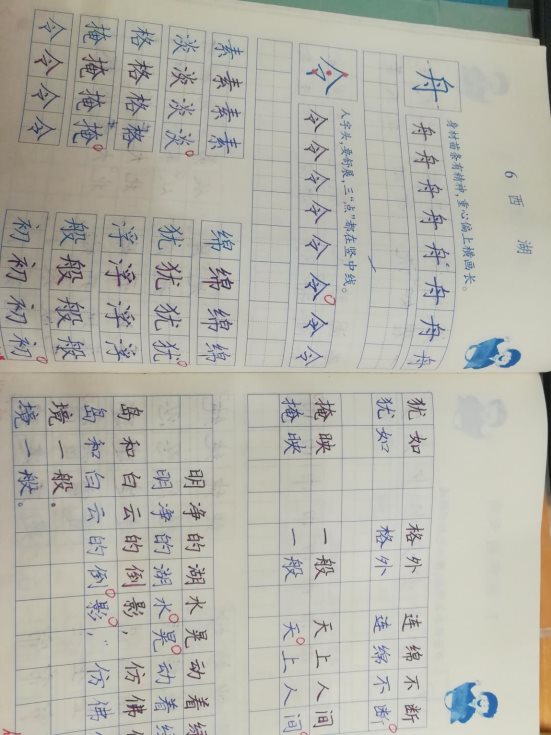 6 西 湖
身材苗条有精神,重心偏上横画长。
舟 舟 舟 舟 舟 舟 舟 舟 舟
人字头,要舒展,三“点”都在竖中线。
令 令 令 令 令 令 令 令 令
素 素 素 素 绵 绵 绵 绵
淡 淡 淡 淡 犹 犹 犹 犹
格 格 格 格 浮 浮 浮 浮
掩 掩 掩 掩 般 般 般 般
令 令 令 令 初 初 初 初
犹如 格外 连绵不断
犹如 格外 连绵不断
掩映 一般 天上人间
掩映 一般 天上人间
明净的湖水晃动着
明净的湖水晃动着
岛和白云的倒影,仿佛
岛和白云的倒影,仿佛
境一般。
境一般。